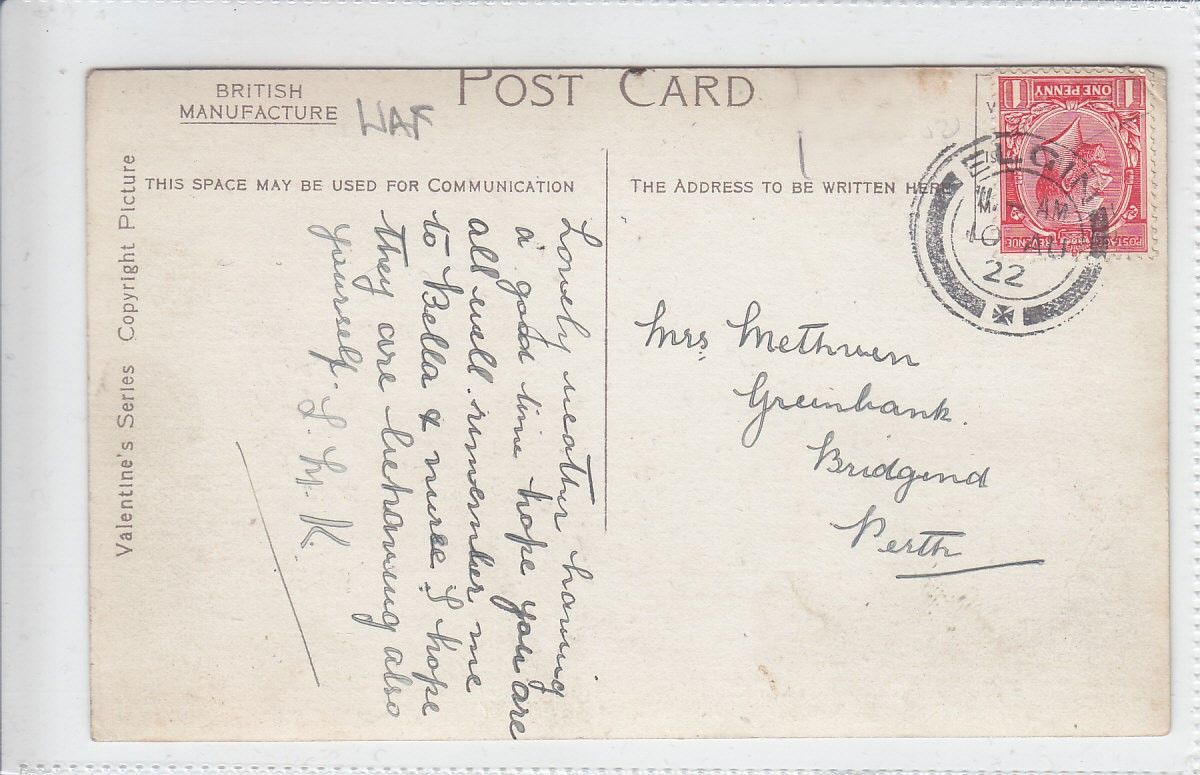 POST CARD
BRITISH
MANUFACTURE
WAF
THIS SPACE MAY BE USED FOR COMMUNICATION
THE ADDRESS TO BE WRITTEN HERE
Valentine's Series Copyright Picture
Lovely weather having
a good time hope you are
all well. remember me
to Bella & nurse. I hope
they are behaving also
yourself.
L. M. K.
Mrs Methven
Greenbank.
Bridgend
Perth
1 ONE PENNY 1
POSTAGE REVENUE
ELGIN
AM
10 AU
22